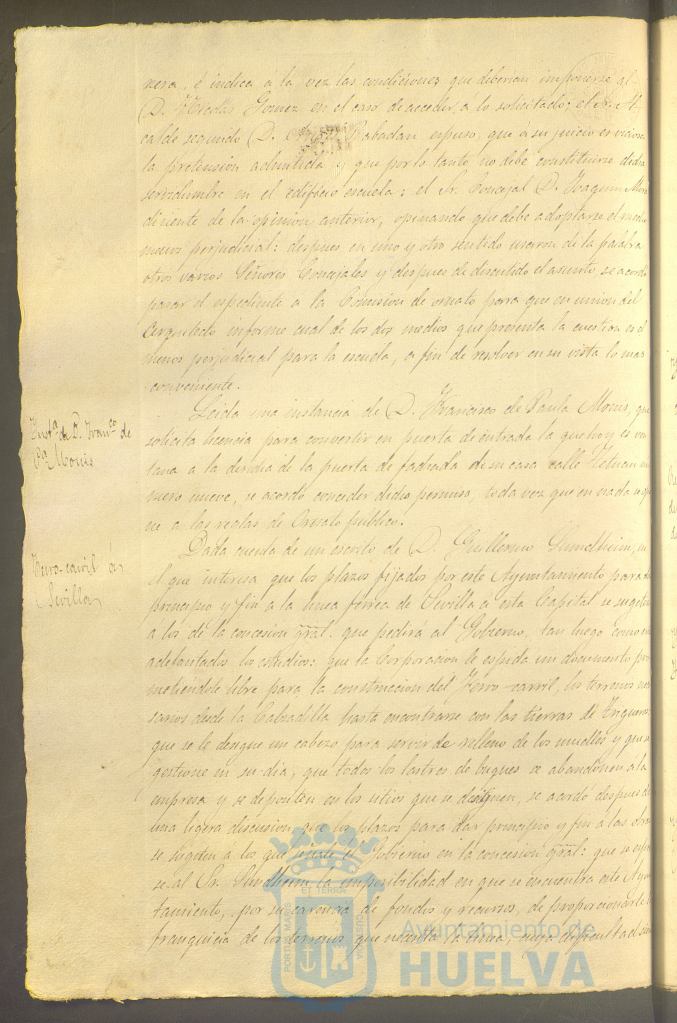 nera, é indica a la vez las condiciones que deberian imponerse al
D. Nicolás Gomez en el caso de acceder a lo solicitado; el Sr. Al-
calde segundo D. Rabadan espuso, que á su juicio es viciosa
la pretension admitida y que por lo tanto no debe constituirse dicha
servidumbre en el edificio escuela: el Sr. Concejal D. Joaquin Mora
disiente de la opinion anterior, opinando que debe adoptarse el medio
menos perjudicial: despues en uno y otro sentido usaron de la palabra
otros varios Señores Concejales y despues de discutido el asunto se acordó
pasar el espediente a la Comision de ornato para que en union del
Arquitecto informe cual de los dos medios que presenta la cuestion es el
menos perjudicial para la escuela, a fin de resolver en su vista lo mas
conveniente.
Insta. de D. Franco. de
Pa. Monis
Leida una instancia de D. Francisco de Paula Monis, que
solicita licencia para convertir en puerta de entrada la que hoy es ven
tana a la derecha de la puerta de fachada de su casa calle Tetuan nu
mero nueve, se acordó conceder dicho permiso, toda vez que en nada se opo
ne a las reglas de Ornato público.
Ferro-carril á
Sevilla
Dada cuenta de un escrito de D. Guillermo Sundheim, en
el que interesa que los plazos fijados por este Ayuntamiento para dar
principio y fin a la linea férrea de Sevilla a esta Capital se sugeten
a los de la concesion gral. que pedirá al Gobierno, tan luego como esten
adelantados los estudios: que la Corporacion le espida un documento pro
metiéndole libre para la construccion del Ferro-carril, los terrenos nece
sarios desde la Calzadilla hasta encontrarse con las tierras de
que se le designe un cabezo para servir de relleno de los muelles y que se
gestione en su dia, que todos los lastres de buques se abandonen a la
empresa y se depositen en los sitios que se designen, se acordó despues de
una ligera discusion que los plazos para dar principio y fin a las obras
se sugeten a los que señale el Gobierno en la concesion gral: que se espre
se al Sr. Sundheim la imposibilidad en que se encuentra este Ayun
tamiento, por su carencia de fondos y recursos, de proporcionarle la
franquicia de los terrenos que necesita la linea, cuya dificultad
PORTUS MARIS
ET TERRAE
CUSTODIA
Ayuntamiento de
HUELVA